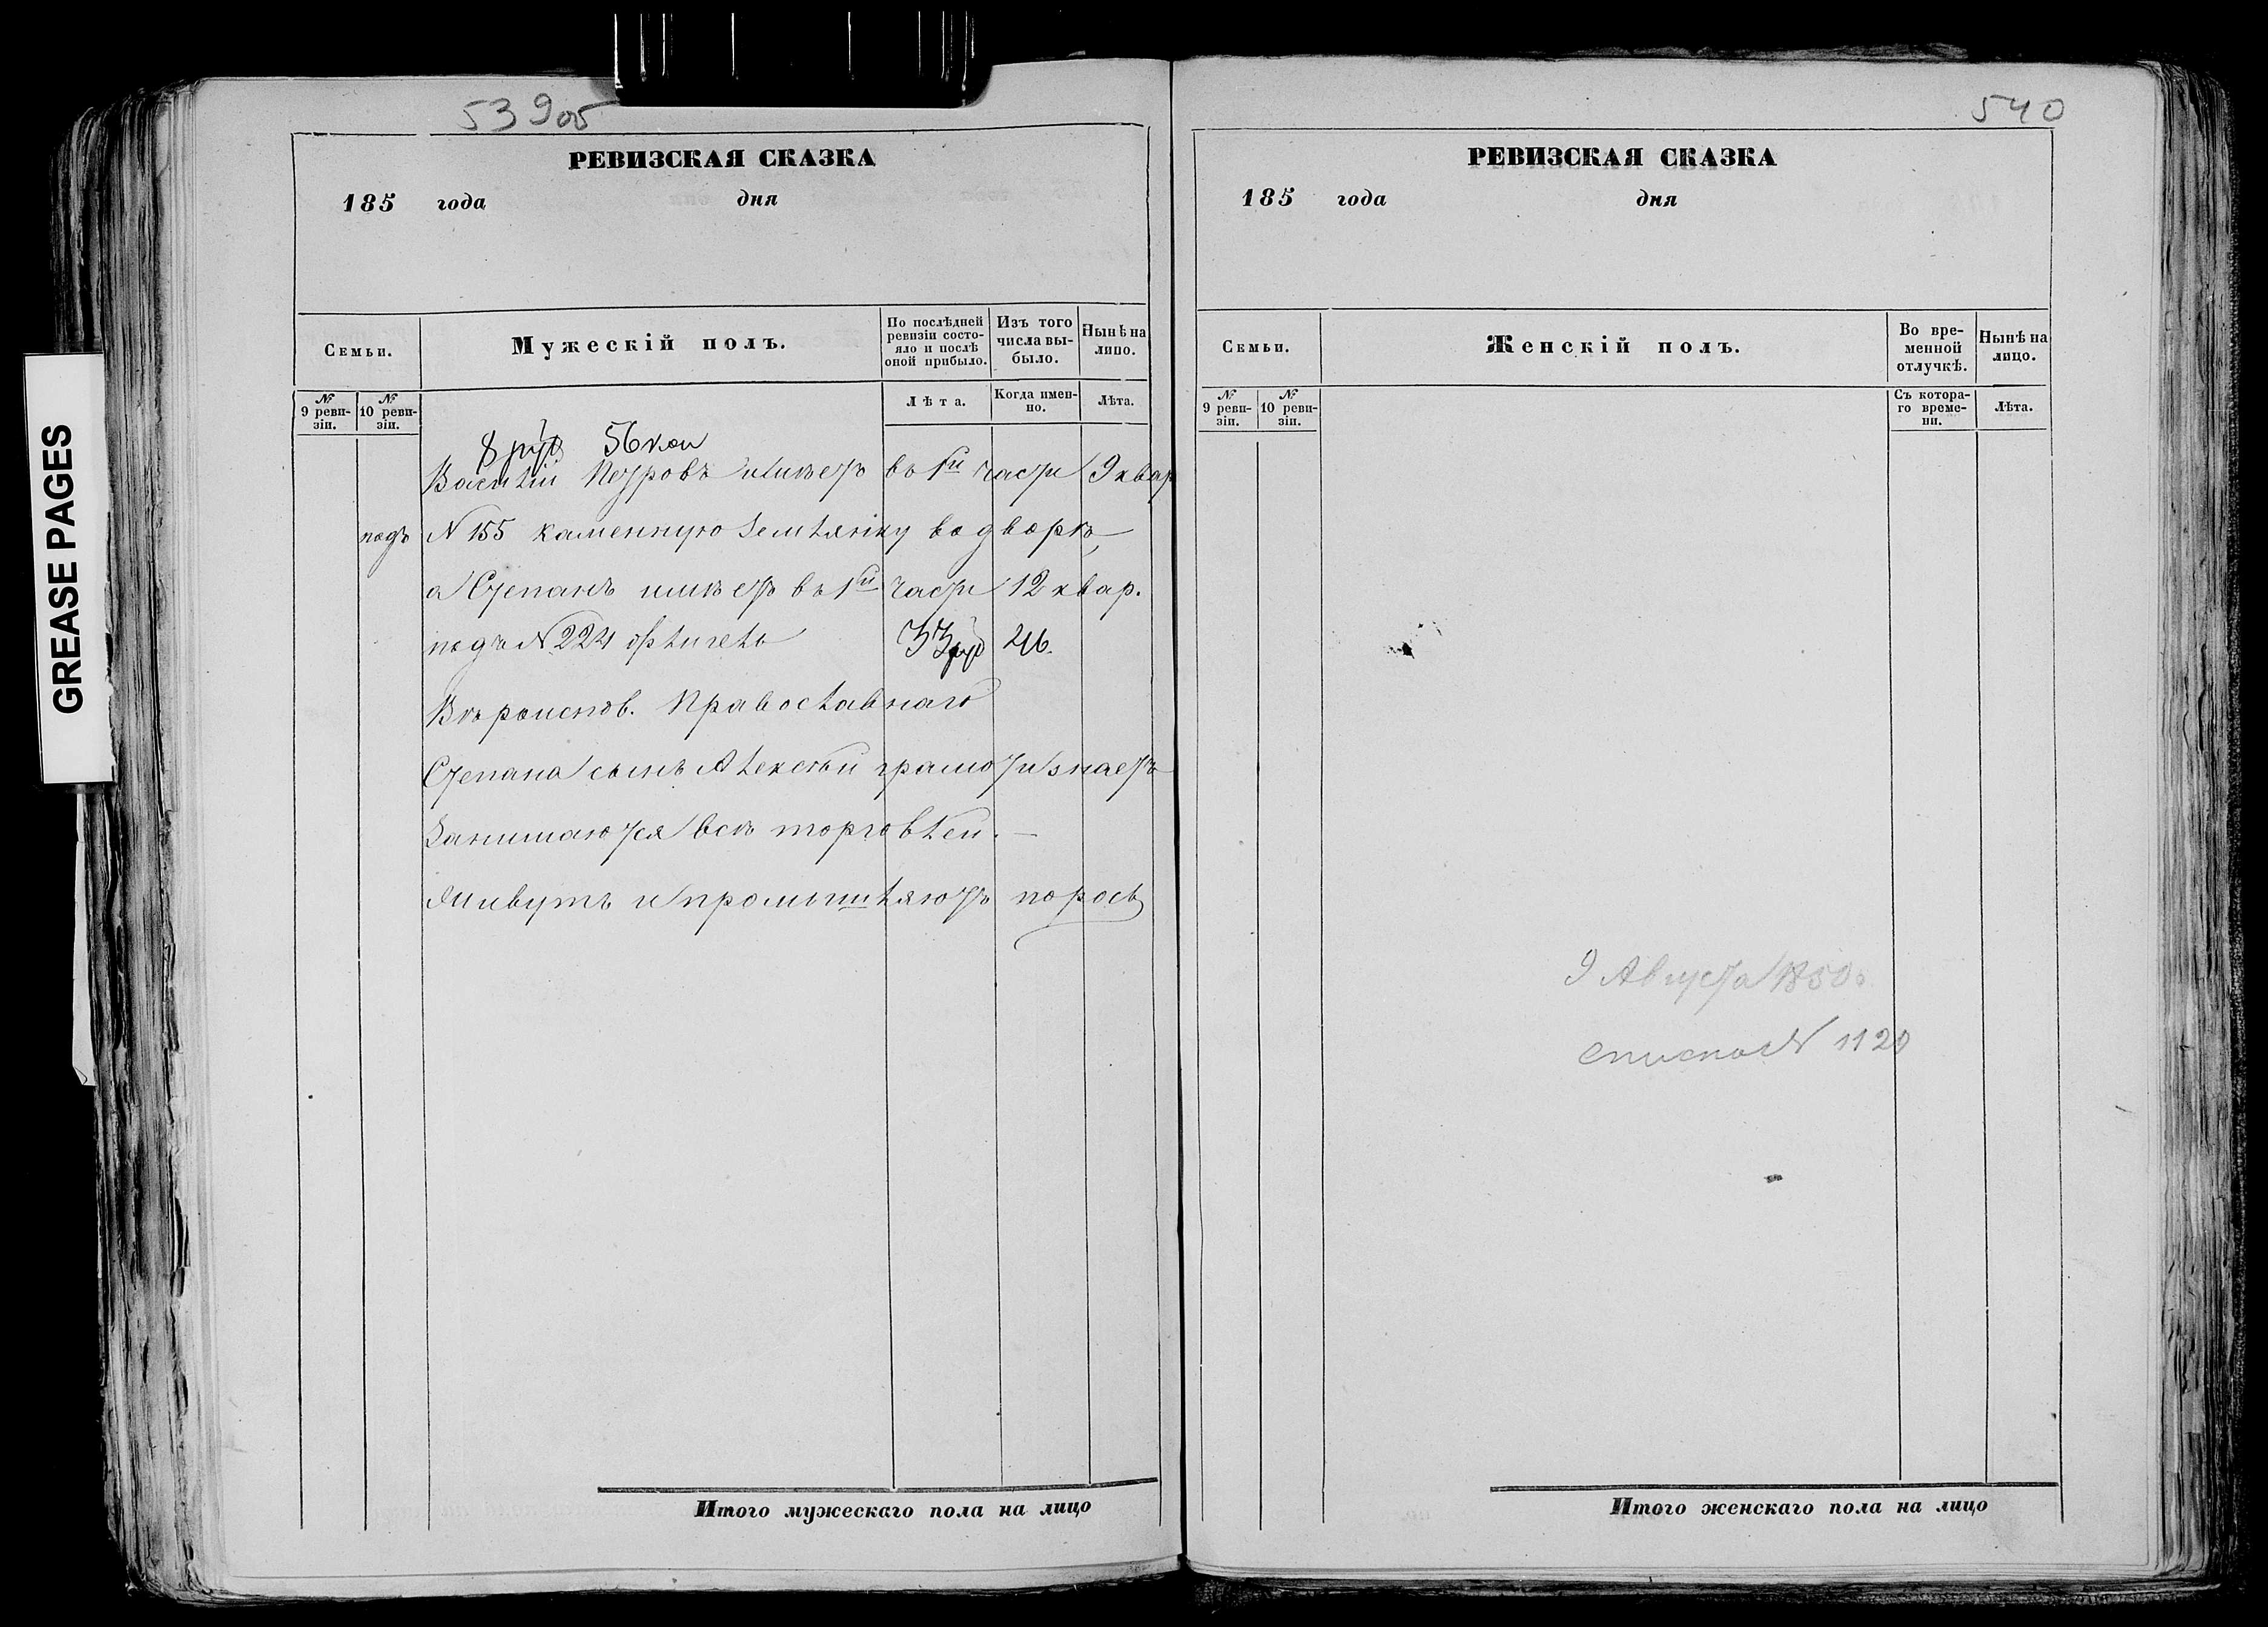 539об
РЕВИЗСКАЯ СКАЗКА
185 года дня
Семьи.
Мужескій полъ.
По послѣдней ревизіи состояло и послѣ оной прибыло.
Изъ того числа выбыло.
Нынѣ на лицо.
№ 9 ревизіи.
№ 10 ревизіи.
Лѣта.
Когда именно.
Лѣта.
8 руб 56 коп
Василій Петровъ имѣетъ въ 1й части 9 квар
подъ № 155 каменную землянку во дворѣ,
а Степанъ имѣетъ въ 1й части 12 квар.
подъ № 224
33 руб
Вѣроиспов. Православнаго
Степана сынъ Алексѣй грамоти знаетъ
Занимаются всѣ торговлей. —
Живутъ и промышляютъ порось
Итого мужескаго пола на лицо
540
РЕВИЗСКАЯ СКАЗКА
185 года дня
Семьи.
Женскій полъ.
Во временной отлучкѣ.
Нынѣ на лицо.
№ 9 ревизіи.
№ 10 ревизіи.
Съ котораго времени.
Лѣта.
9 Августа 1850
списка № 1120
Итого женскаго пола на лицо
GREASE PAGES